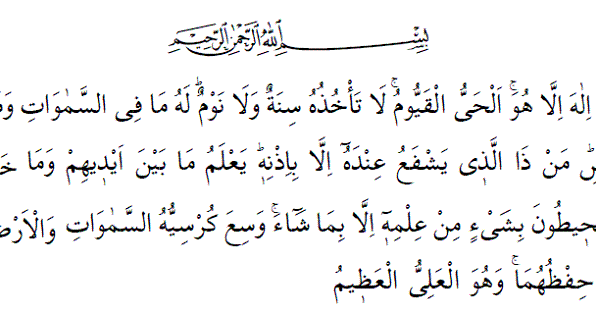 بِسْمِ اللهِ الرَّحْمٰنِ الرَّحِيمِ
اِلٰهَ اِلَّا هُوَۚ اَلْحَىُّ الْقَيُّومُۚ لَا تَأْخُذُهُ سِنَةٌ وَلَا نَوْمٌۜ لَهُ مَا فِى السَّمٰوَاتِ
مَنْ ذَا الَّذٖى يَشْفَعُ عِنْدَهُٓ اِلَّا بِاِذْنِهٖۜ يَعْلَمُ مَا بَيْنَ اَيْدٖيهِمْ وَمَا
بِشَىْءٍ مِنْ عِلْمِهٖٓ اِلَّا بِمَا شَٓاءَۚ وَسِعَ كُرْسِيُّهُ السَّمٰوَاتِ
حِفْظُهُمَاۚ وَهُوَ الْعَلِىُّ الْعَظٖيمُ